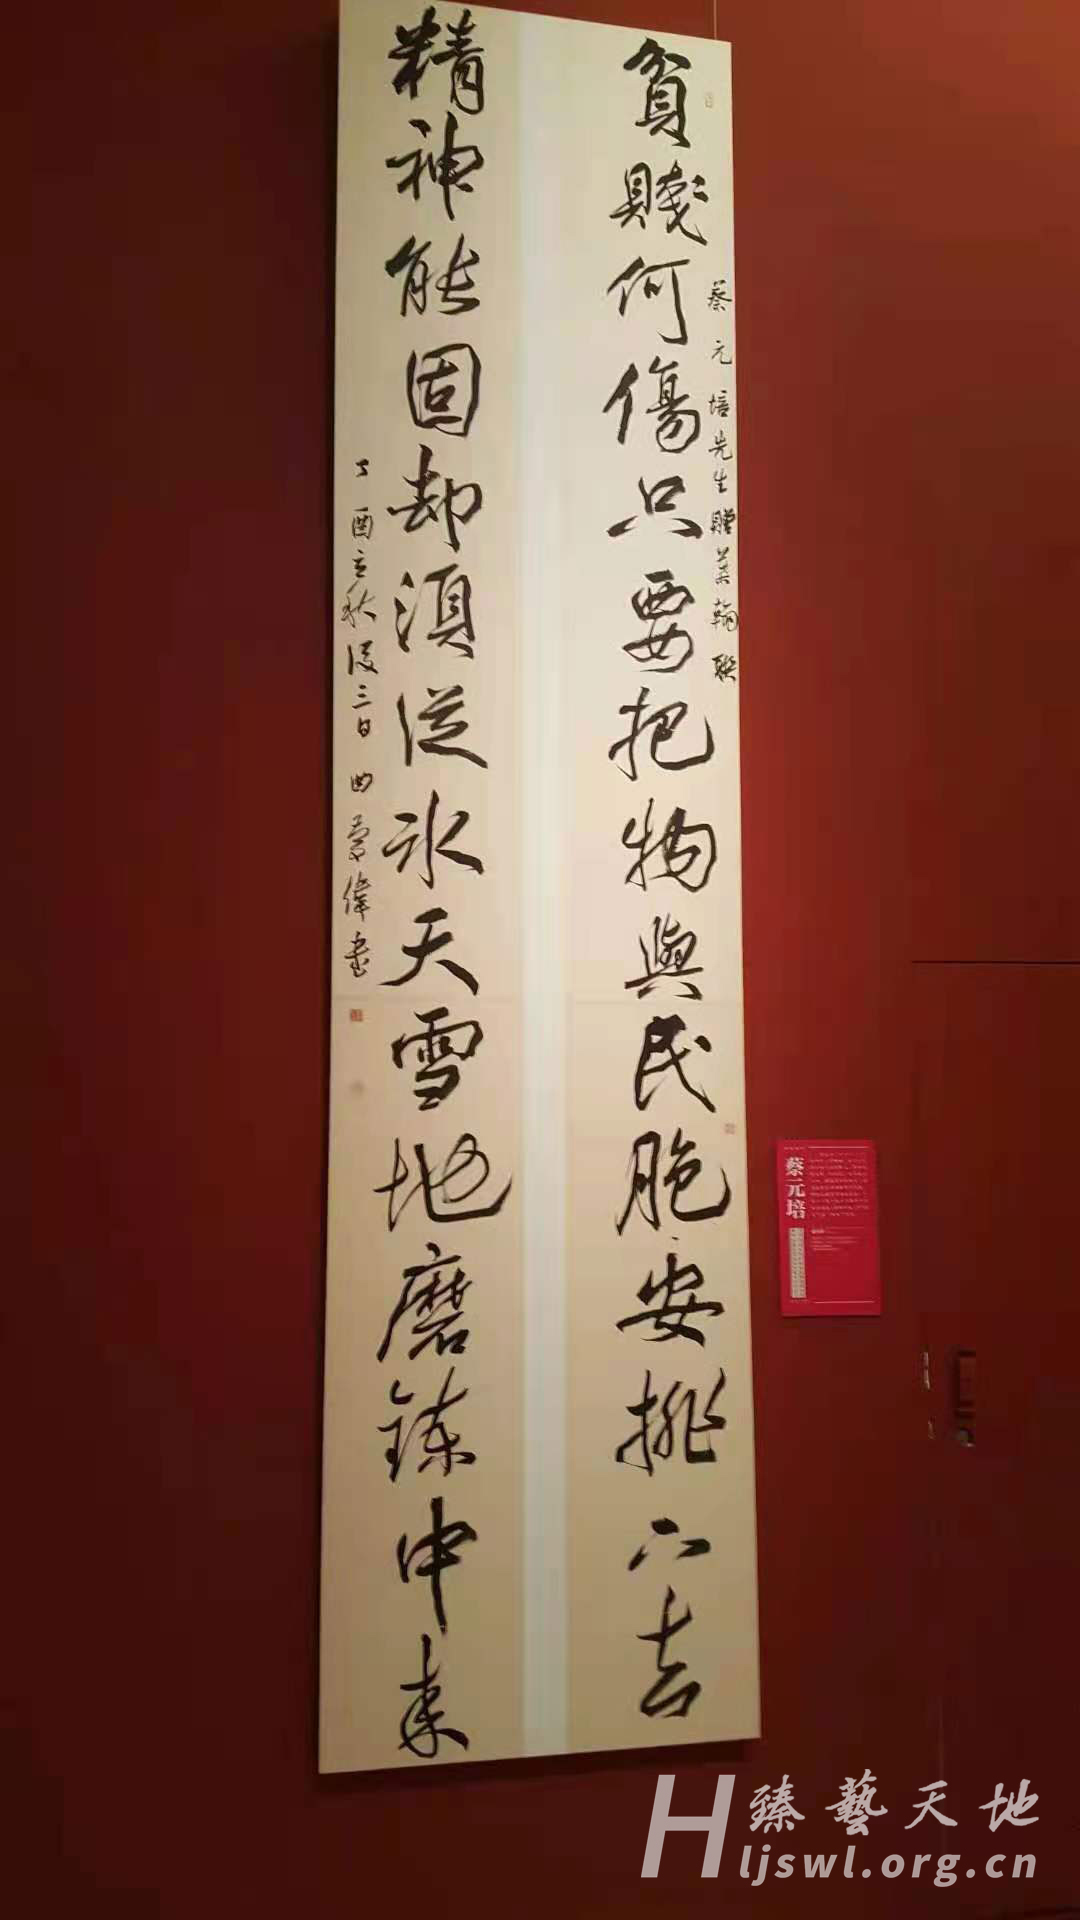 貧賤何傷只要把物與民胞安排下去
蔡元培先生贈葉翰聯
精神能固却須從冰天雪地磨鍊中来
丁酉立秋後三日 曲慶偉書
蔡元培
臻藝天地
Hljswl.org.cn